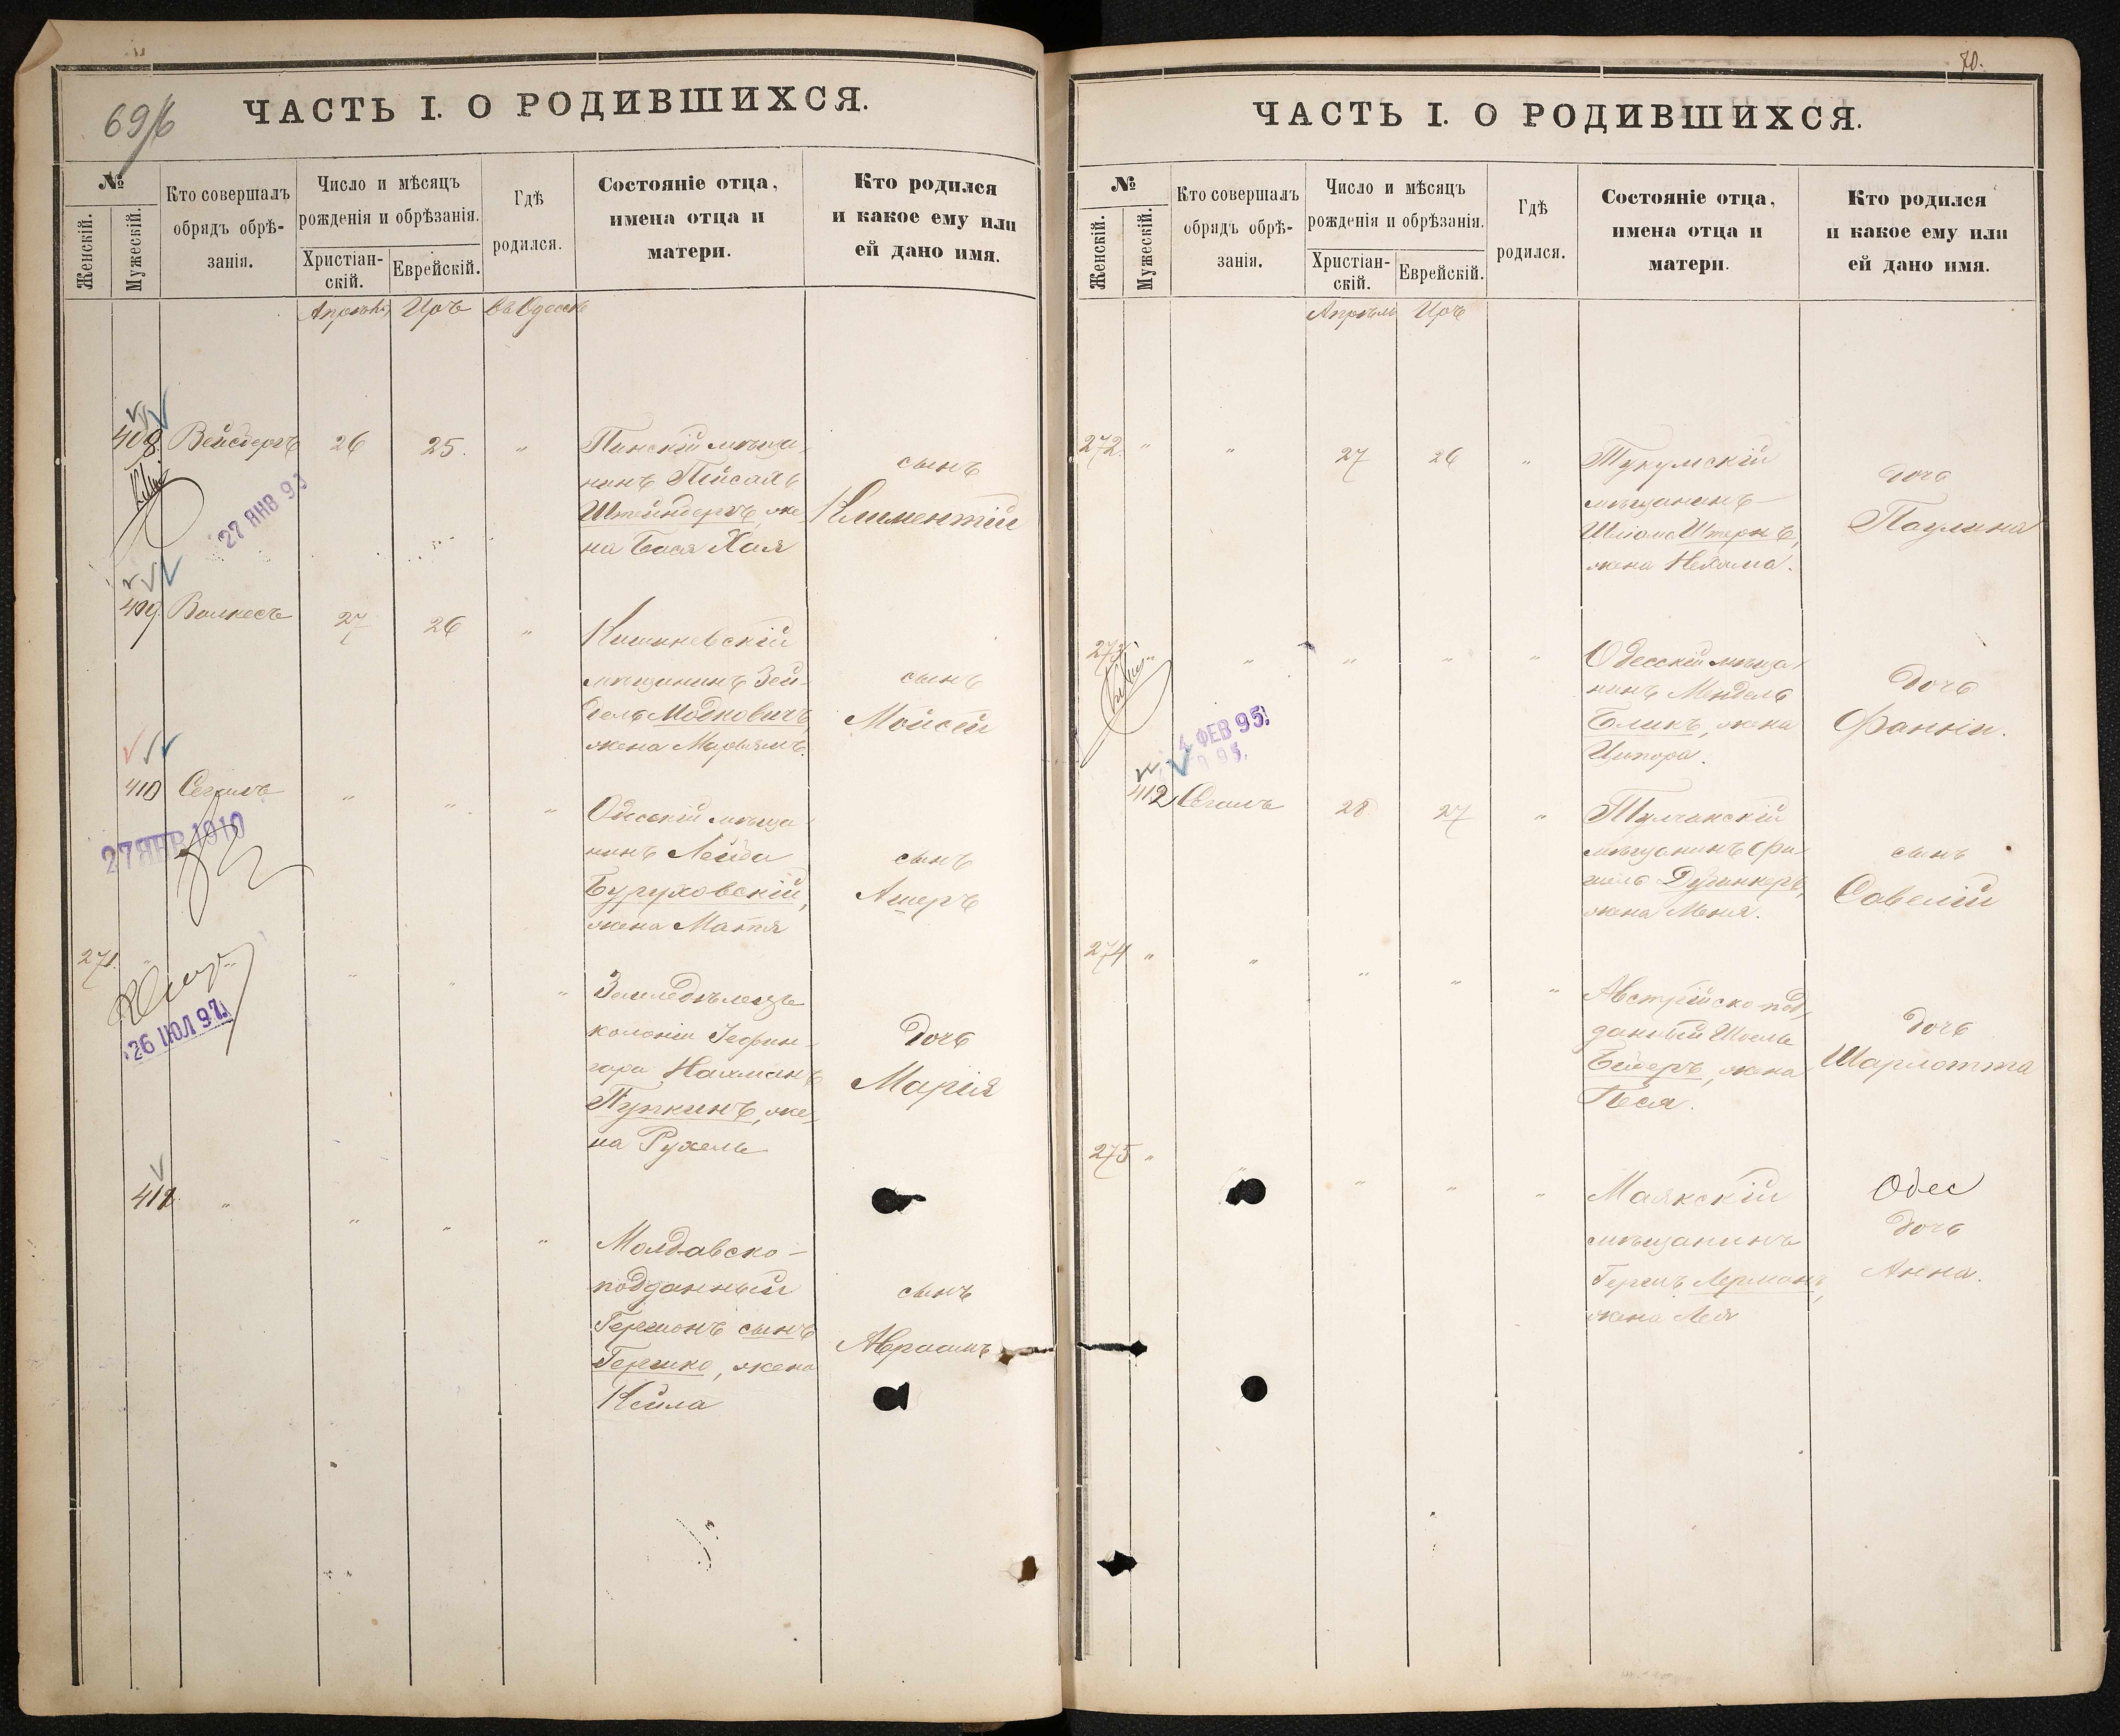 69/6
ЧАСТЬ I. О РОДИВШИХСЯ.
№
Женскій.
Мужескій.
Кто совершалъ
обрядъ обрѣ-
занія.
Число и мѣсяцъ
рожденія и обрѣзанія.
Христіан-
скій.
Еврейскій.
Гдѣ
родился.
Состояніе отца,
имена отца и
матери.
Кто родился
и какое ему или
ей дано имя.
Апрѣль Иръ въ Одессѣ
408. Вейсбергъ 26 25. "
Пинскій мѣща-
нинъ Пейсахъ
Штейнбергъ, же
на Бася Хая
сынъ
Климентій
27 ЯНВ 93
409. Волкесъ 27 26 "
Кишиневскій
мѣщанинъ Зей-
дель Модковичъ,
жена Марьямъ.
сынъ
Мойсей
410 Сегалъ " " "
Одесскій мѣща-
нинъ Лейба
Буруховскій,
жена Матя
сынъ
Ашеръ
27 ЯНВ 1910
271. " " " "
Земледѣлецъ
колоніи Іефин-
гара Нахманъ
Пупкинъ, же-
на Рухель
дочь
Марія
26 ИЮЛ 97.
411 " " " "
Молдавско-
подданный
Гершонъ сынъ
Гершко, жена
Кейла
сынъ
Авраамъ
70.
ЧАСТЬ I. О РОДИВШИХСЯ.
№
Женскій.
Мужескій.
Кто совершалъ
обрядъ обрѣ-
занія.
Число и мѣсяцъ
рожденія и обрѣзанія.
Христіан-
скій.
Еврейскій.
Гдѣ
родился.
Состояніе отца,
имена отца и
матери.
Кто родился
и какое ему или
ей дано имя.
Апрѣль Иръ
272. " " 27 26 "
Тукумскій
мѣщанинъ
Шлома Штернъ,
жена Нехама.
дочь
Паулина
273 " " " " "
Одесскій мѣща-
нинъ Мендель
Бликъ, жена
Ципора.
дочь
Фанни.
4 ФЕВ 95.
412 Сегалъ 28 27 "
Тульчинскій
мѣщанинъ Фи-
шель Душкеръ,
жена Меня.
сынъ
Савелій
274 " " " " "
Австрійско-под-
данный Шоель
Бейеръ, жена
Песя.
дочь
Шарлотта
275 " " " " "
Маякскій
мѣщанинъ
Гершъ Лерманъ,
жена Лея
Одес
дочь
Анна.